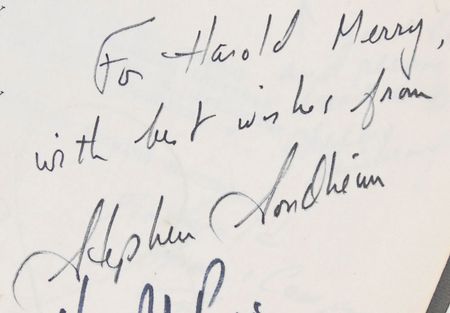 For Harold Merry,
with best wishes from
Stephen Sondheim